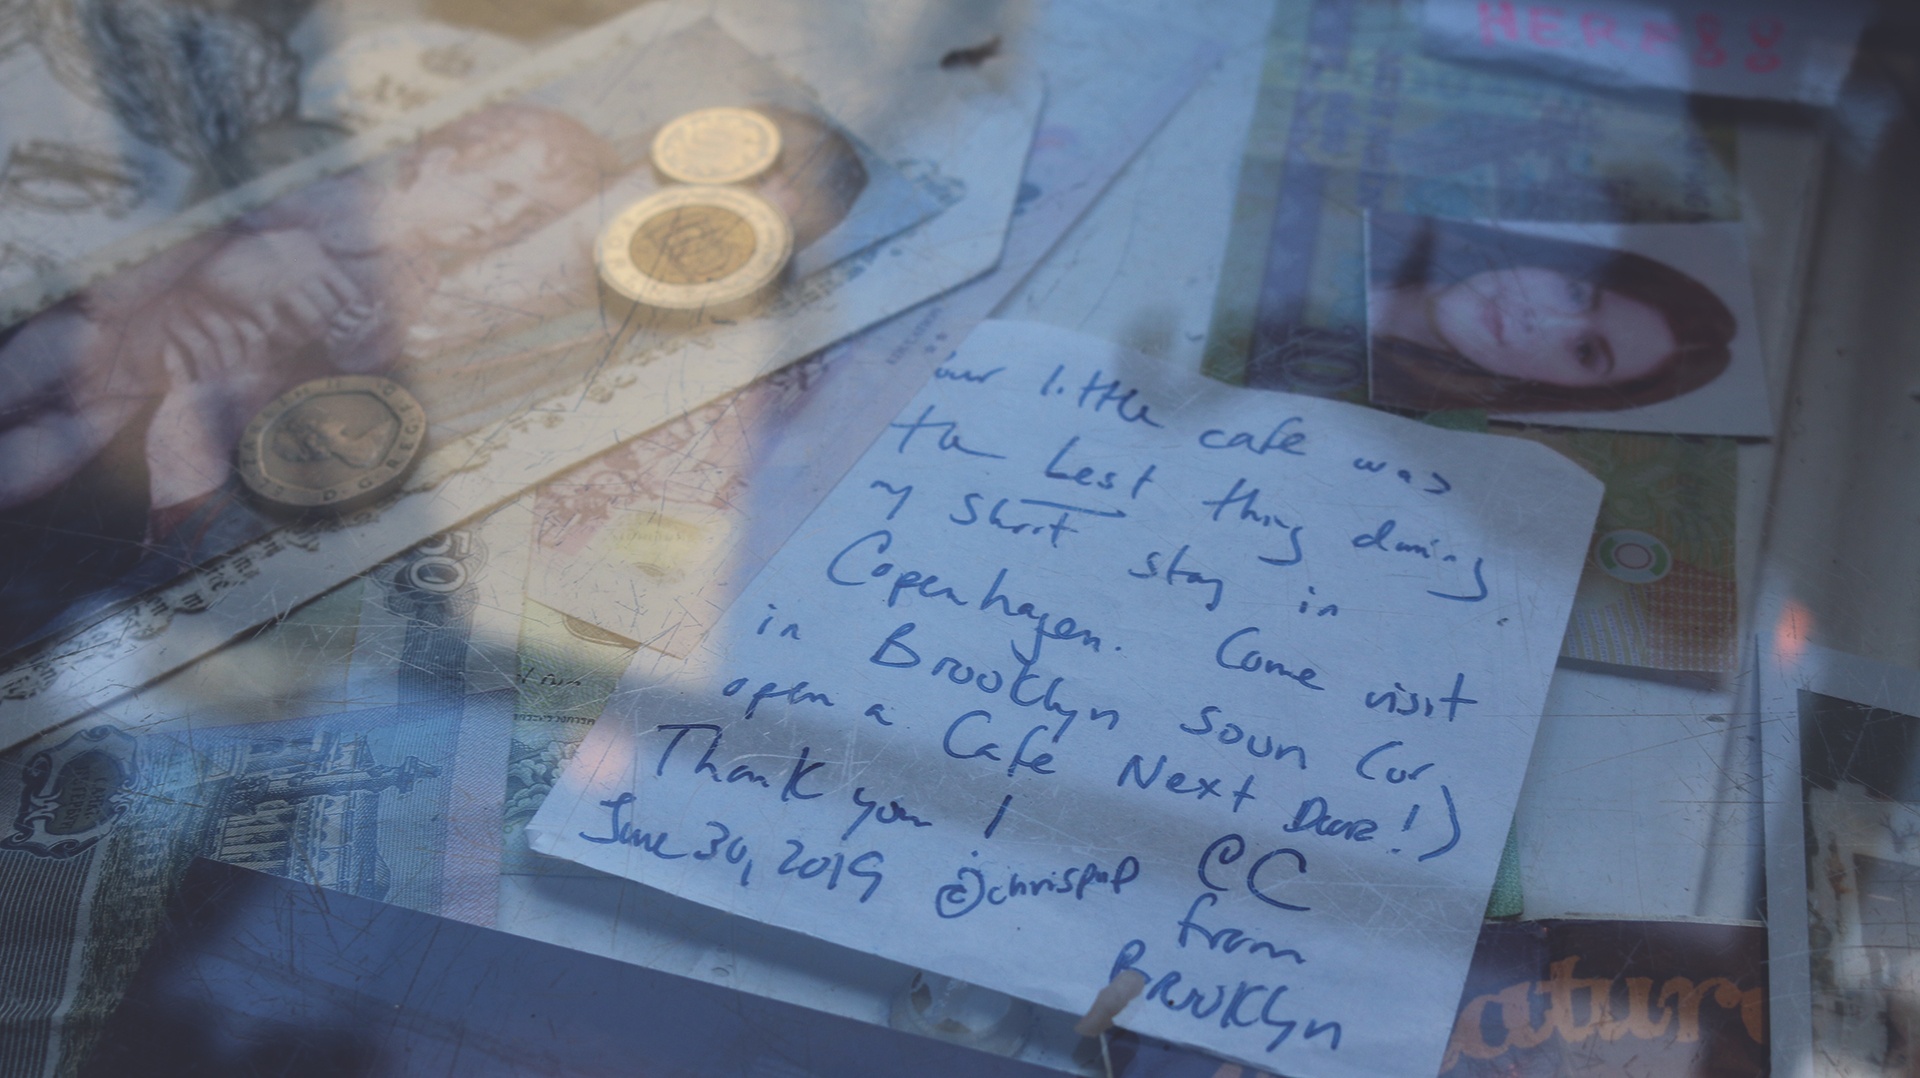 HERR
our little cafe was
the best thing during
my short stay in
Copenhagen. Come visit
in Brooklyn soon (or
open a Cafe Next Door!)
Thank you! CC
June 30, 2019 @chrispop from
Brooklyn
atur